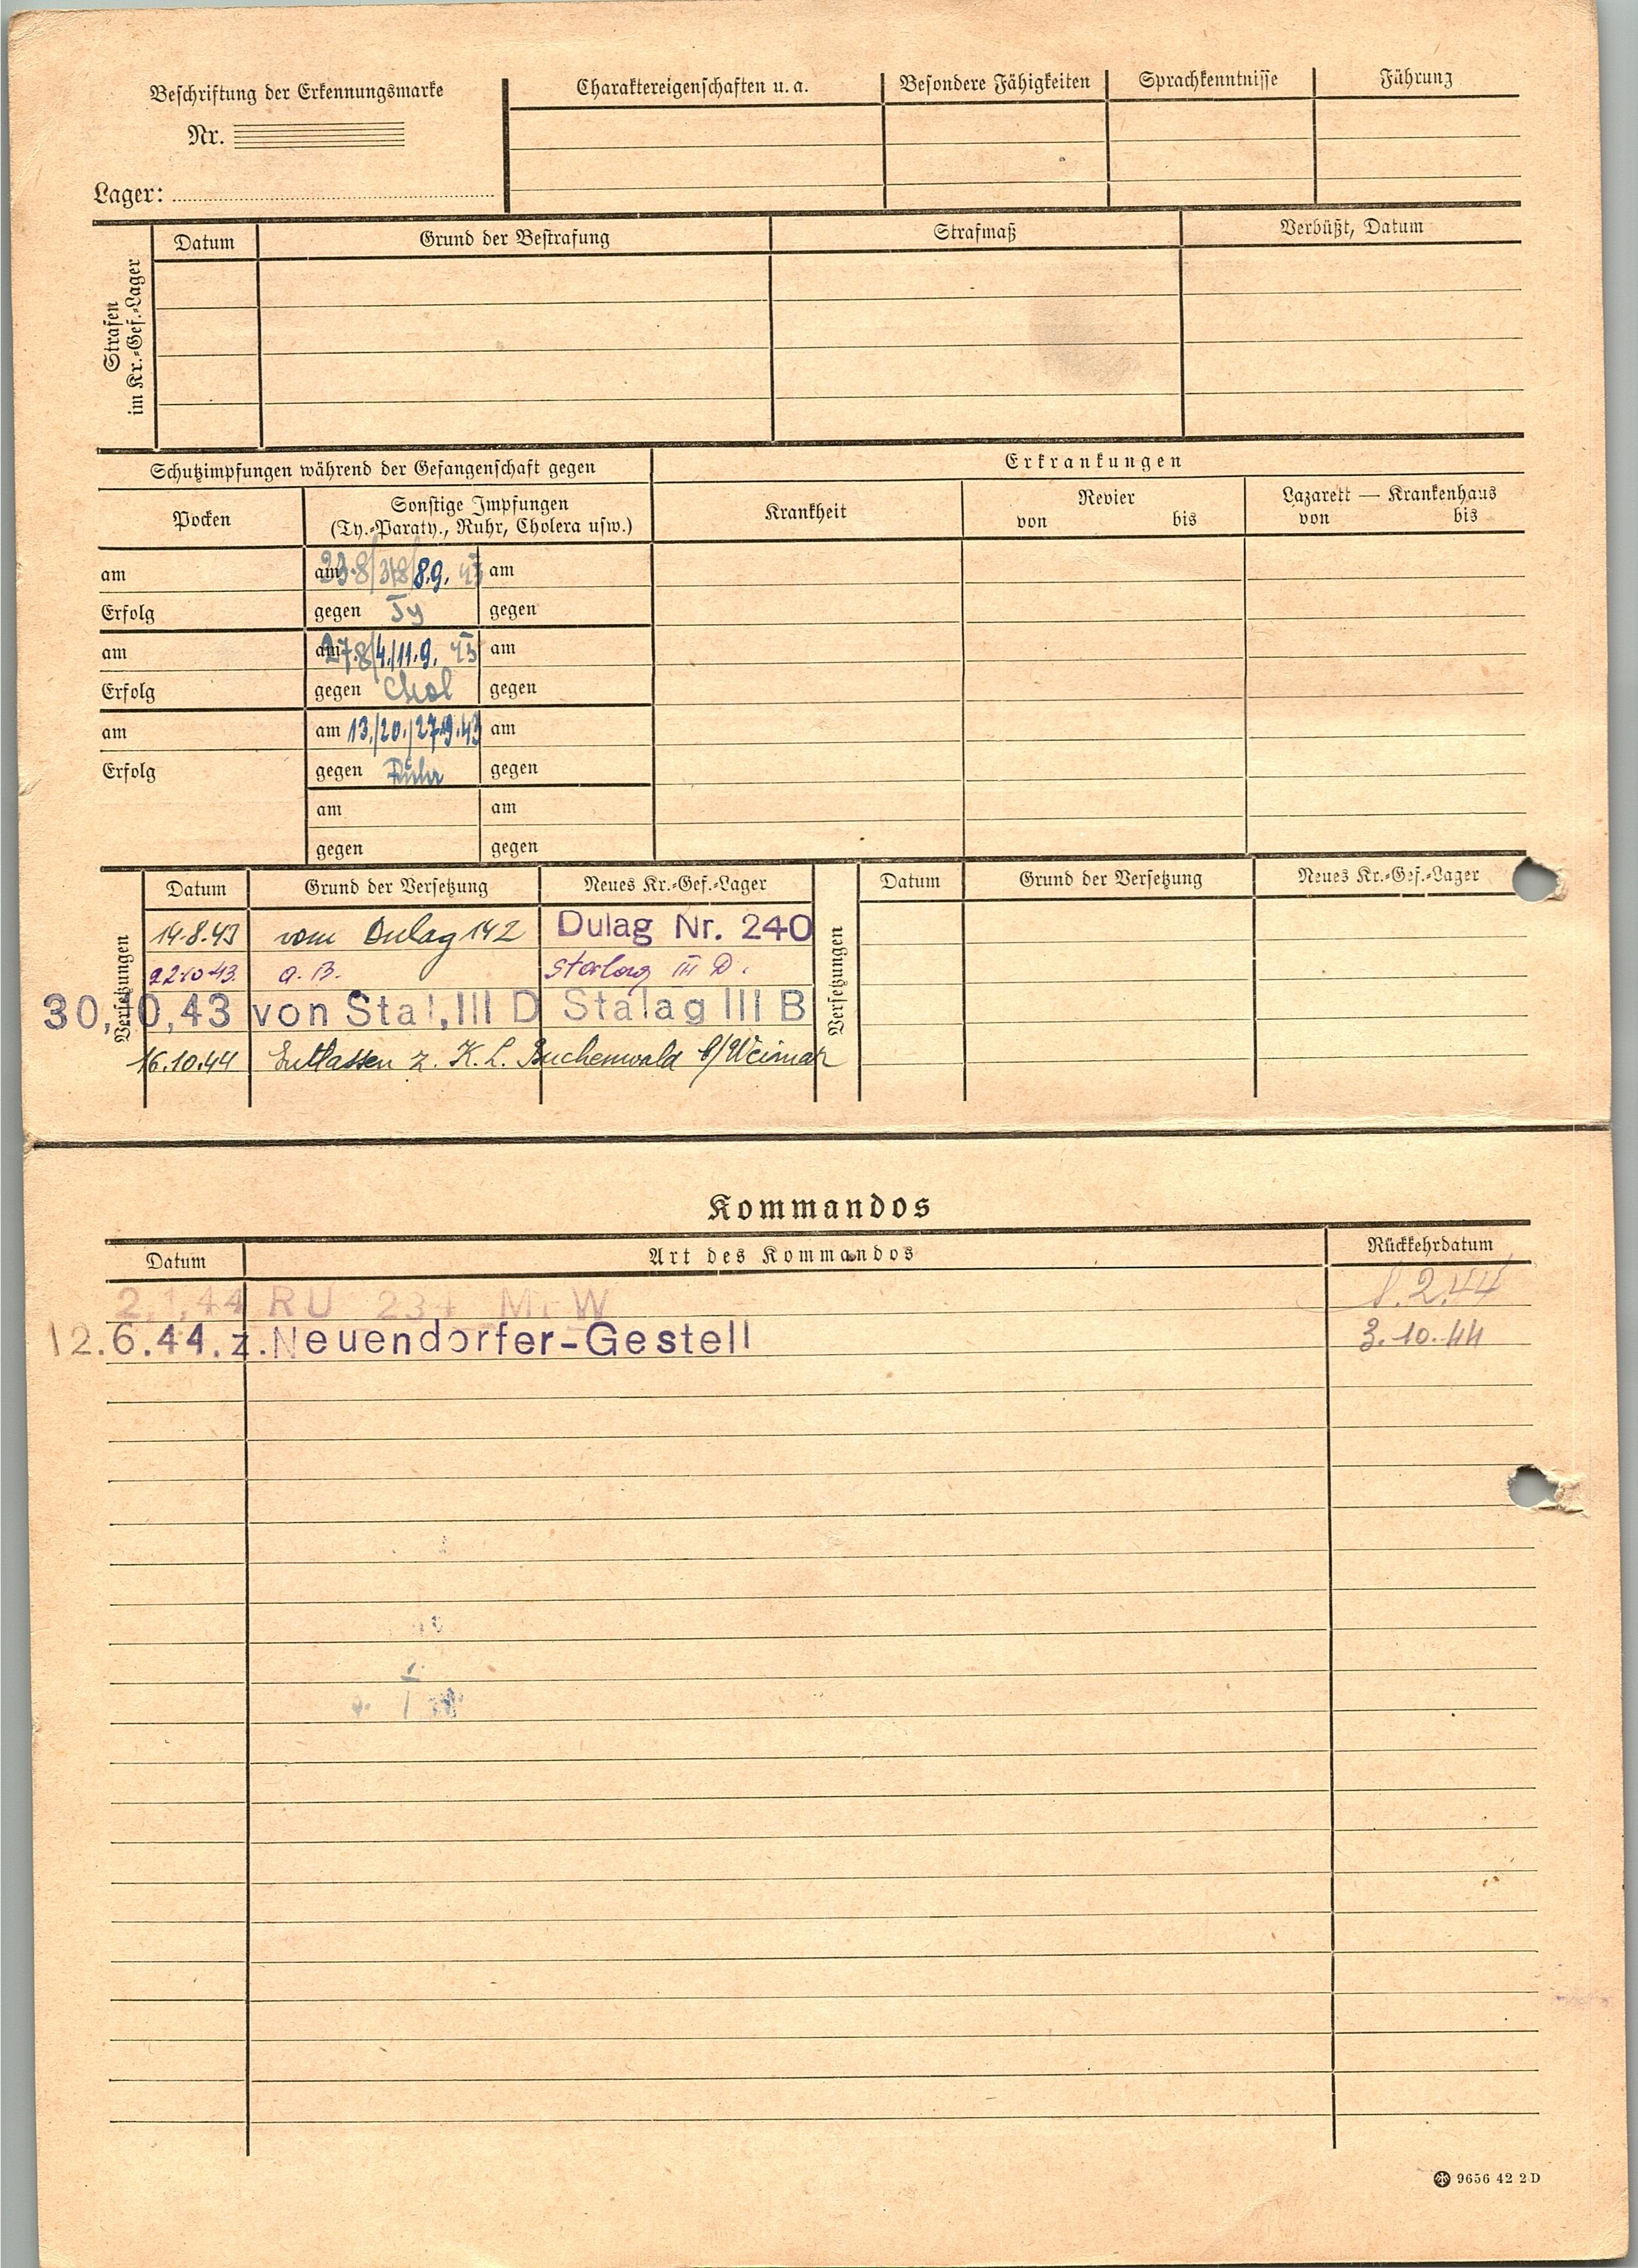 Beschriftung der Erkennungsmarke
Nr.
Lager:
Charaktereigenschaften u. a. Besondere Fähigkeiten Sprachkenntnisse Führung
Strafen
im Kr.-Gef.-Lager
Datum Grund der Bestrafung Strafmaß Verbüßt, Datum
Schutzimpfungen während der Gefangenschaft gegen
Erkrankungen
Pocken
Sonstige Impfungen
(Ty.-Paraty., Ruhr, Cholera usw.)
Krankheit
Revier
von bis
Lazarett — Krankenhaus
von bis
am am 23.8/31.8/8.9. 43 am
Erfolg gegen Ty gegen
am am 27.8/4./11.9. 43 am
Erfolg gegen Chol gegen
am am 13./20./27.9.43 am
Erfolg gegen Ruhr gegen
am am
gegen gegen
Versetzungen
Datum Grund der Versetzung Neues Kr.-Gef.-Lager
14.8.43 vom Dulag 142 Dulag Nr. 240
22.10.43. a. B. Stalag III D.
30,10,43 von Stal, III D Stalag III B
16.10.44 Entlassen z. K. L. Buchenwald b/Weimar
Versetzungen
Datum Grund der Versetzung Neues Kr.-Gef.-Lager
Kommandos
Datum Art des Kommandos Rückkehrdatum
2,1,44 RU 234 .2.44
12.6.44. z. Neuendorfer-Gestell 3.10.44
9656 42 2D